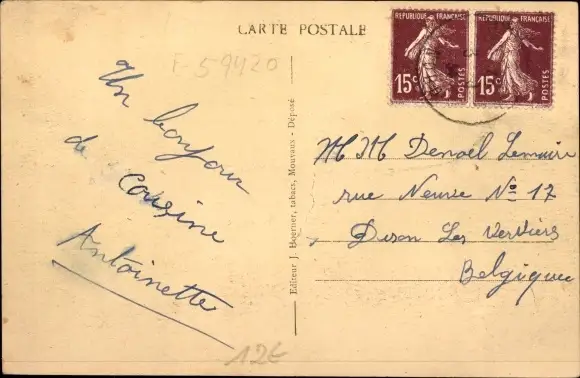 CARTE POSTALE
F-59420
RÉPUBLIQUE FRANÇAISE
15c
POSTES
RÉPUBLIQUE FRANÇAISE
15c
POSTES
Un bonjour
de cousine
Antoinette
Editeur J. Hoerner, tabacs, Mouvaux - Déposé
M M Denoël Lemaire
rue Neuve No 17
Dison Les Verviers
Belgique
12€